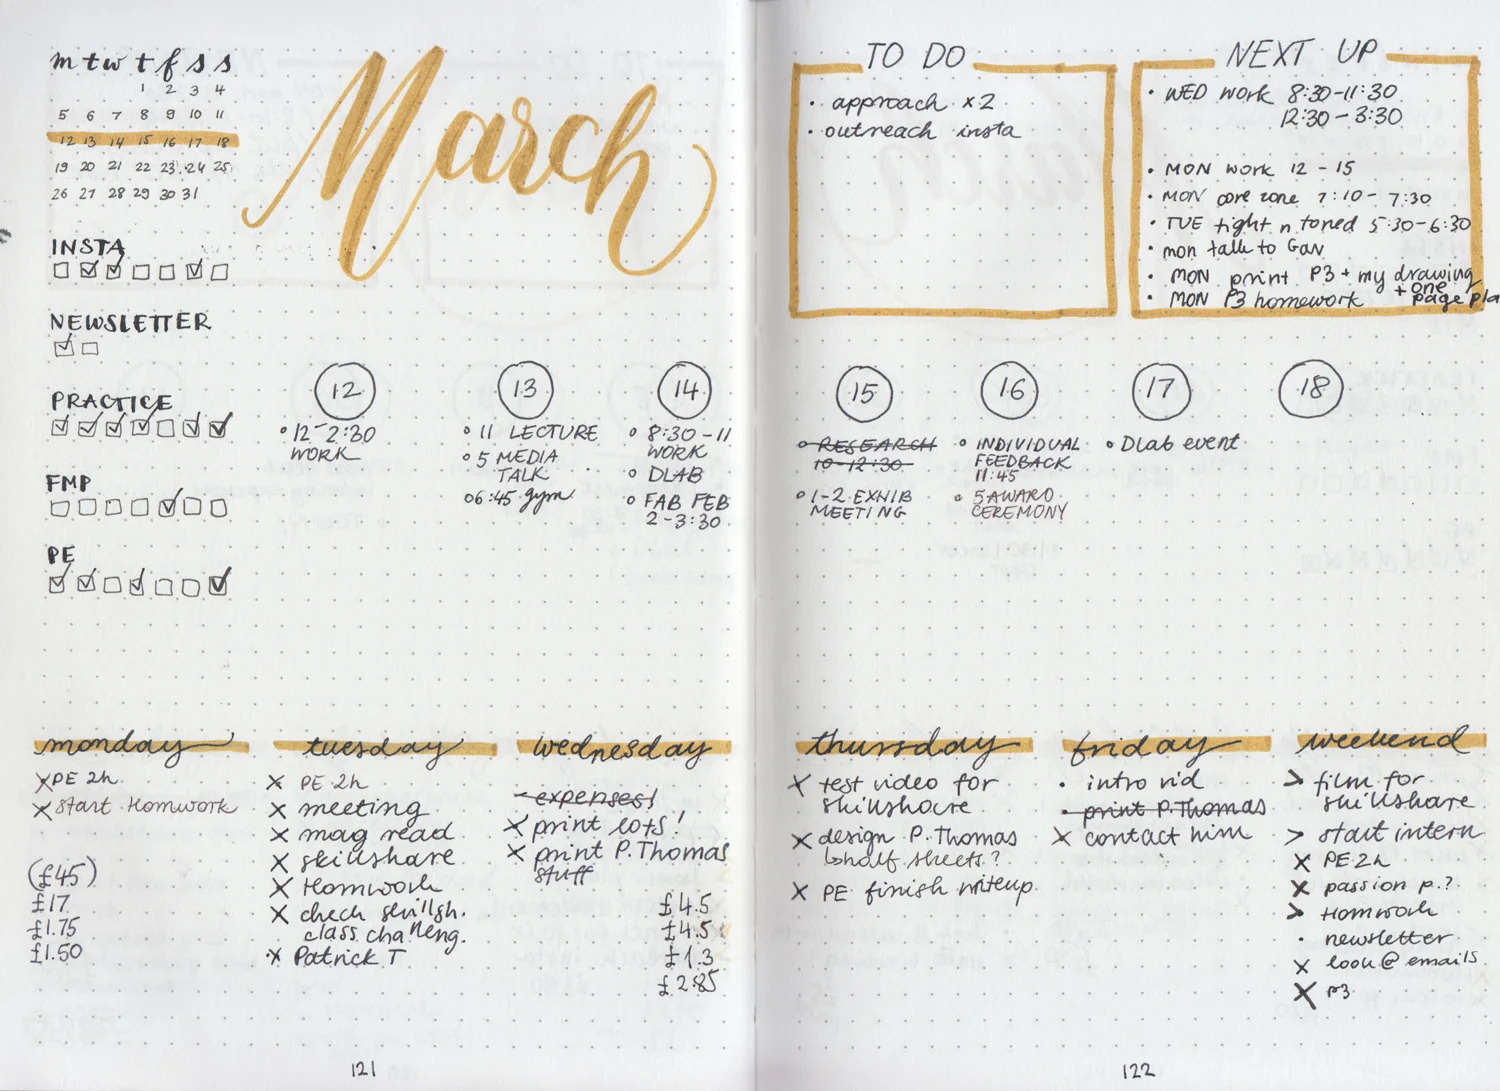 m t w t f s s
1 2 3 4
5 6 7 8 9 10 11
12 13 14 15 16 17 18
19 20 21 22 23 24 25
26 27 28 29 30 31
March
INSTA
NEWSLETTER
PRACTICE
FMP
PE
12
12-2:30
WORK
13
11 LECTURE
5 MEDIA
TALK
6:45 gym
14
8:30-11
WORK
DLAB
FAB FEB
2-3:30
monday
PE 2h
start Homwork
(£45)
£17
£1.75
£1.50
tuesday
PE 2h
meeting
mag read
skillshare
Homwork
check skillsh.
class challeng.
Patrick T
wednesday
expenses!
print lots!
print P.Thomas
stuff
£4.5
£4.5
£1.3
£2.85
121
TO DO
• approach x2
• outreach insta
NEXT UP
• WED work 8:30-11:30
12:30-3:30
• MON work 12-15
• MON core zone 7:10-7:30
• TUE tight n toned 5:30-6:30
• mon talk to Gav
• MON print P3 + my drawing
+ one
• MON P3 homework page pla
15
RESEARCH
10-12:30
1-2 EXHIB
MEETING
16
INDIVIDUAL
FEEDBACK
11:45
5 AWARD
CEREMONY
17
DLab event
18
thursday
test video for
skillshare
design P.Thomas
half sheets?
PE finish writeup
friday
• intro vid
print P.Thomas
contact him
weekend
> film for
skillshare
> start intern
PE 2h
passion p.?
> Homwork
• newsletter
look @ emails
P3
122